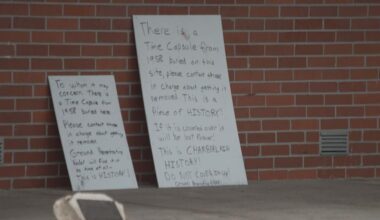 To whom it may
concern. There is
a Time Capsule from
1958 buried here
Please contact those
in charge about
getting it removed.
Ground Penetrating
Radar will find it in
time at all
This is HISTORY!
There is a
Time Capsule from
1958 buried on this
site, please contact those
in charge about getting it
removed. This is a
Piece of HISTORY!
If it is covered over it
will be lost forever!
This is CHAMBERLAIN
HISTORY!
Do Not Cover it up!